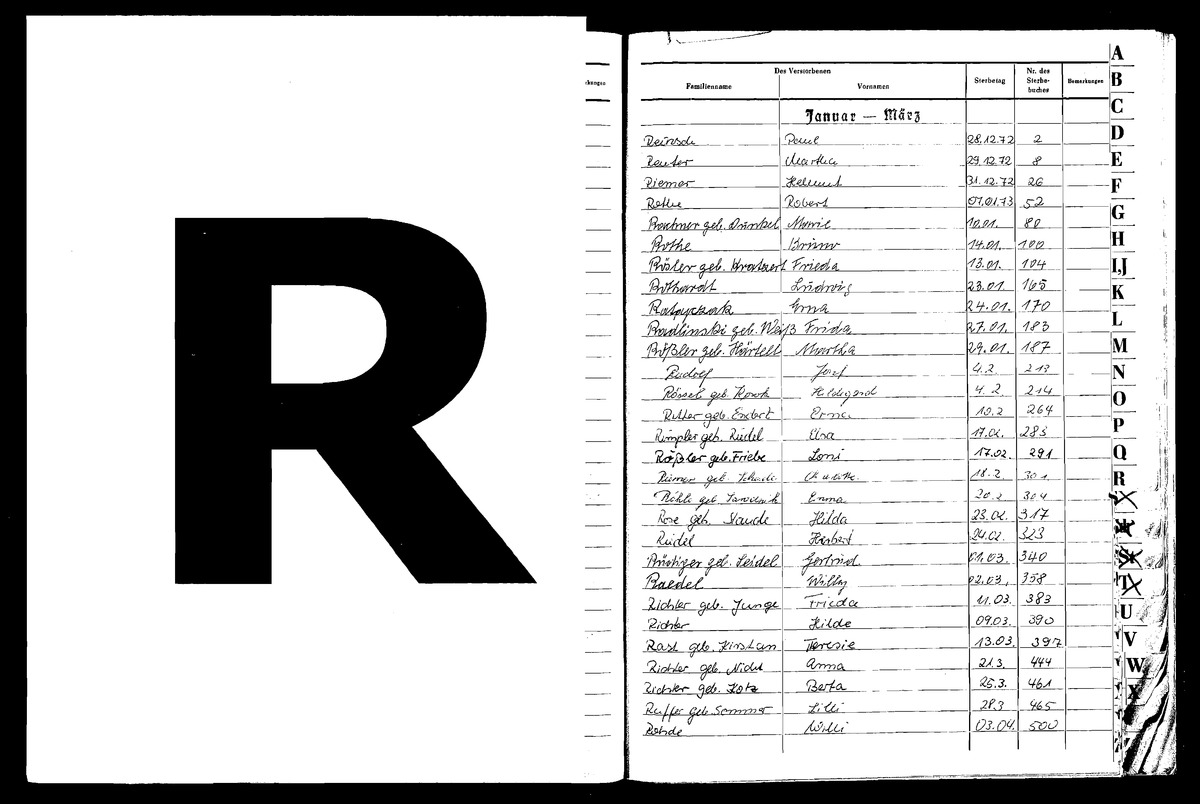 R
Des Verstorbenen
Familienname Vornamen Sterbetag Nr. des Sterbe-buches Bemerkungen
Januar — März
Paul 28.12.72 2
Reuter Martha 29.12.72 8
Riemer Helmut 31.12.72 26
Rothe Robert 01.01.73 52
geb. Dunkel Marie 10.01. 80
Rothe Bruno 14.01. 100
Rösler geb. Kratzert Frieda 13.01. 104
Rothardt Ludwig 23.01. 165
Ratajczak Erna 24.01. 170
Radlinski geb. Weiß Frida 27.01. 183
Rößler geb. Härtelt Martha 29.01. 187
Rudolf Josef 4.2. 213
Rössel geb. Hildegard 4.2. 214
Ritter geb. Erna 10.2 264
Rimpler geb. Riedel Elsa 17.02. 285
Rößler geb. Friebe Loni 17.02. 291
geb. 18.2. 301
geb. Emma 20.2 304
Rose geb. Staude Hilda 23.02. 317
Riedel Herbert 24.02. 323
Rüdiger geb. Seidel Gertrud 01.03. 340
Raedel Willy 02.03. 358
Richter geb. Junge Frieda 11.03. 383
Richter Hilde 09.03. 390
Rast geb. Kirstan Teresie 13.03. 397
Richter geb. Anna 21.3. 444
Richter geb. Kotz Berta 25.3. 461
Ruffer geb. Sommer Lilli 28.3 465
Rohde Willi 03.04. 500
A
B
C
D
E
F
G
H
I,J
K
L
M
N
O
P
Q
R
T
U
V
W
X